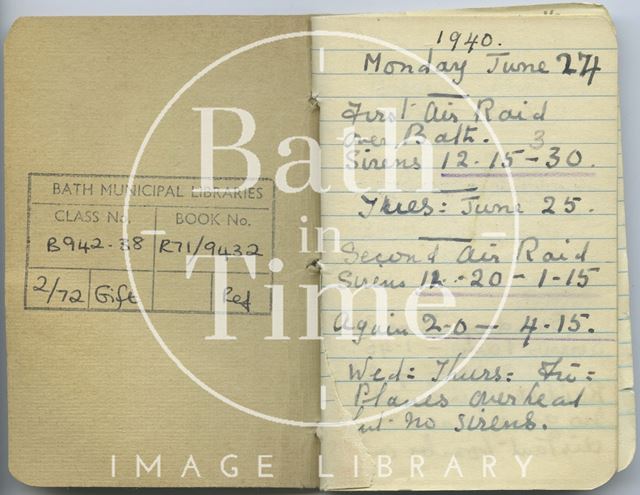 BATH MUNICIPAL LIBRARIES
CLASS No.
BOOK No.
B942.38
R71/9432
2/72
Gift
Ref
1940.
Monday June 24
First Air Raid
over Bath. 3
Sirens 12.15-30.
Tues: June 25.
Second Air Raid
Sirens 12.-20-1-15
Again 2-0-4.15.
Wed= Thurs= Fri=
Planes overhead
but no sirens.
Bath
in
Time
IMAGE LIBRARY